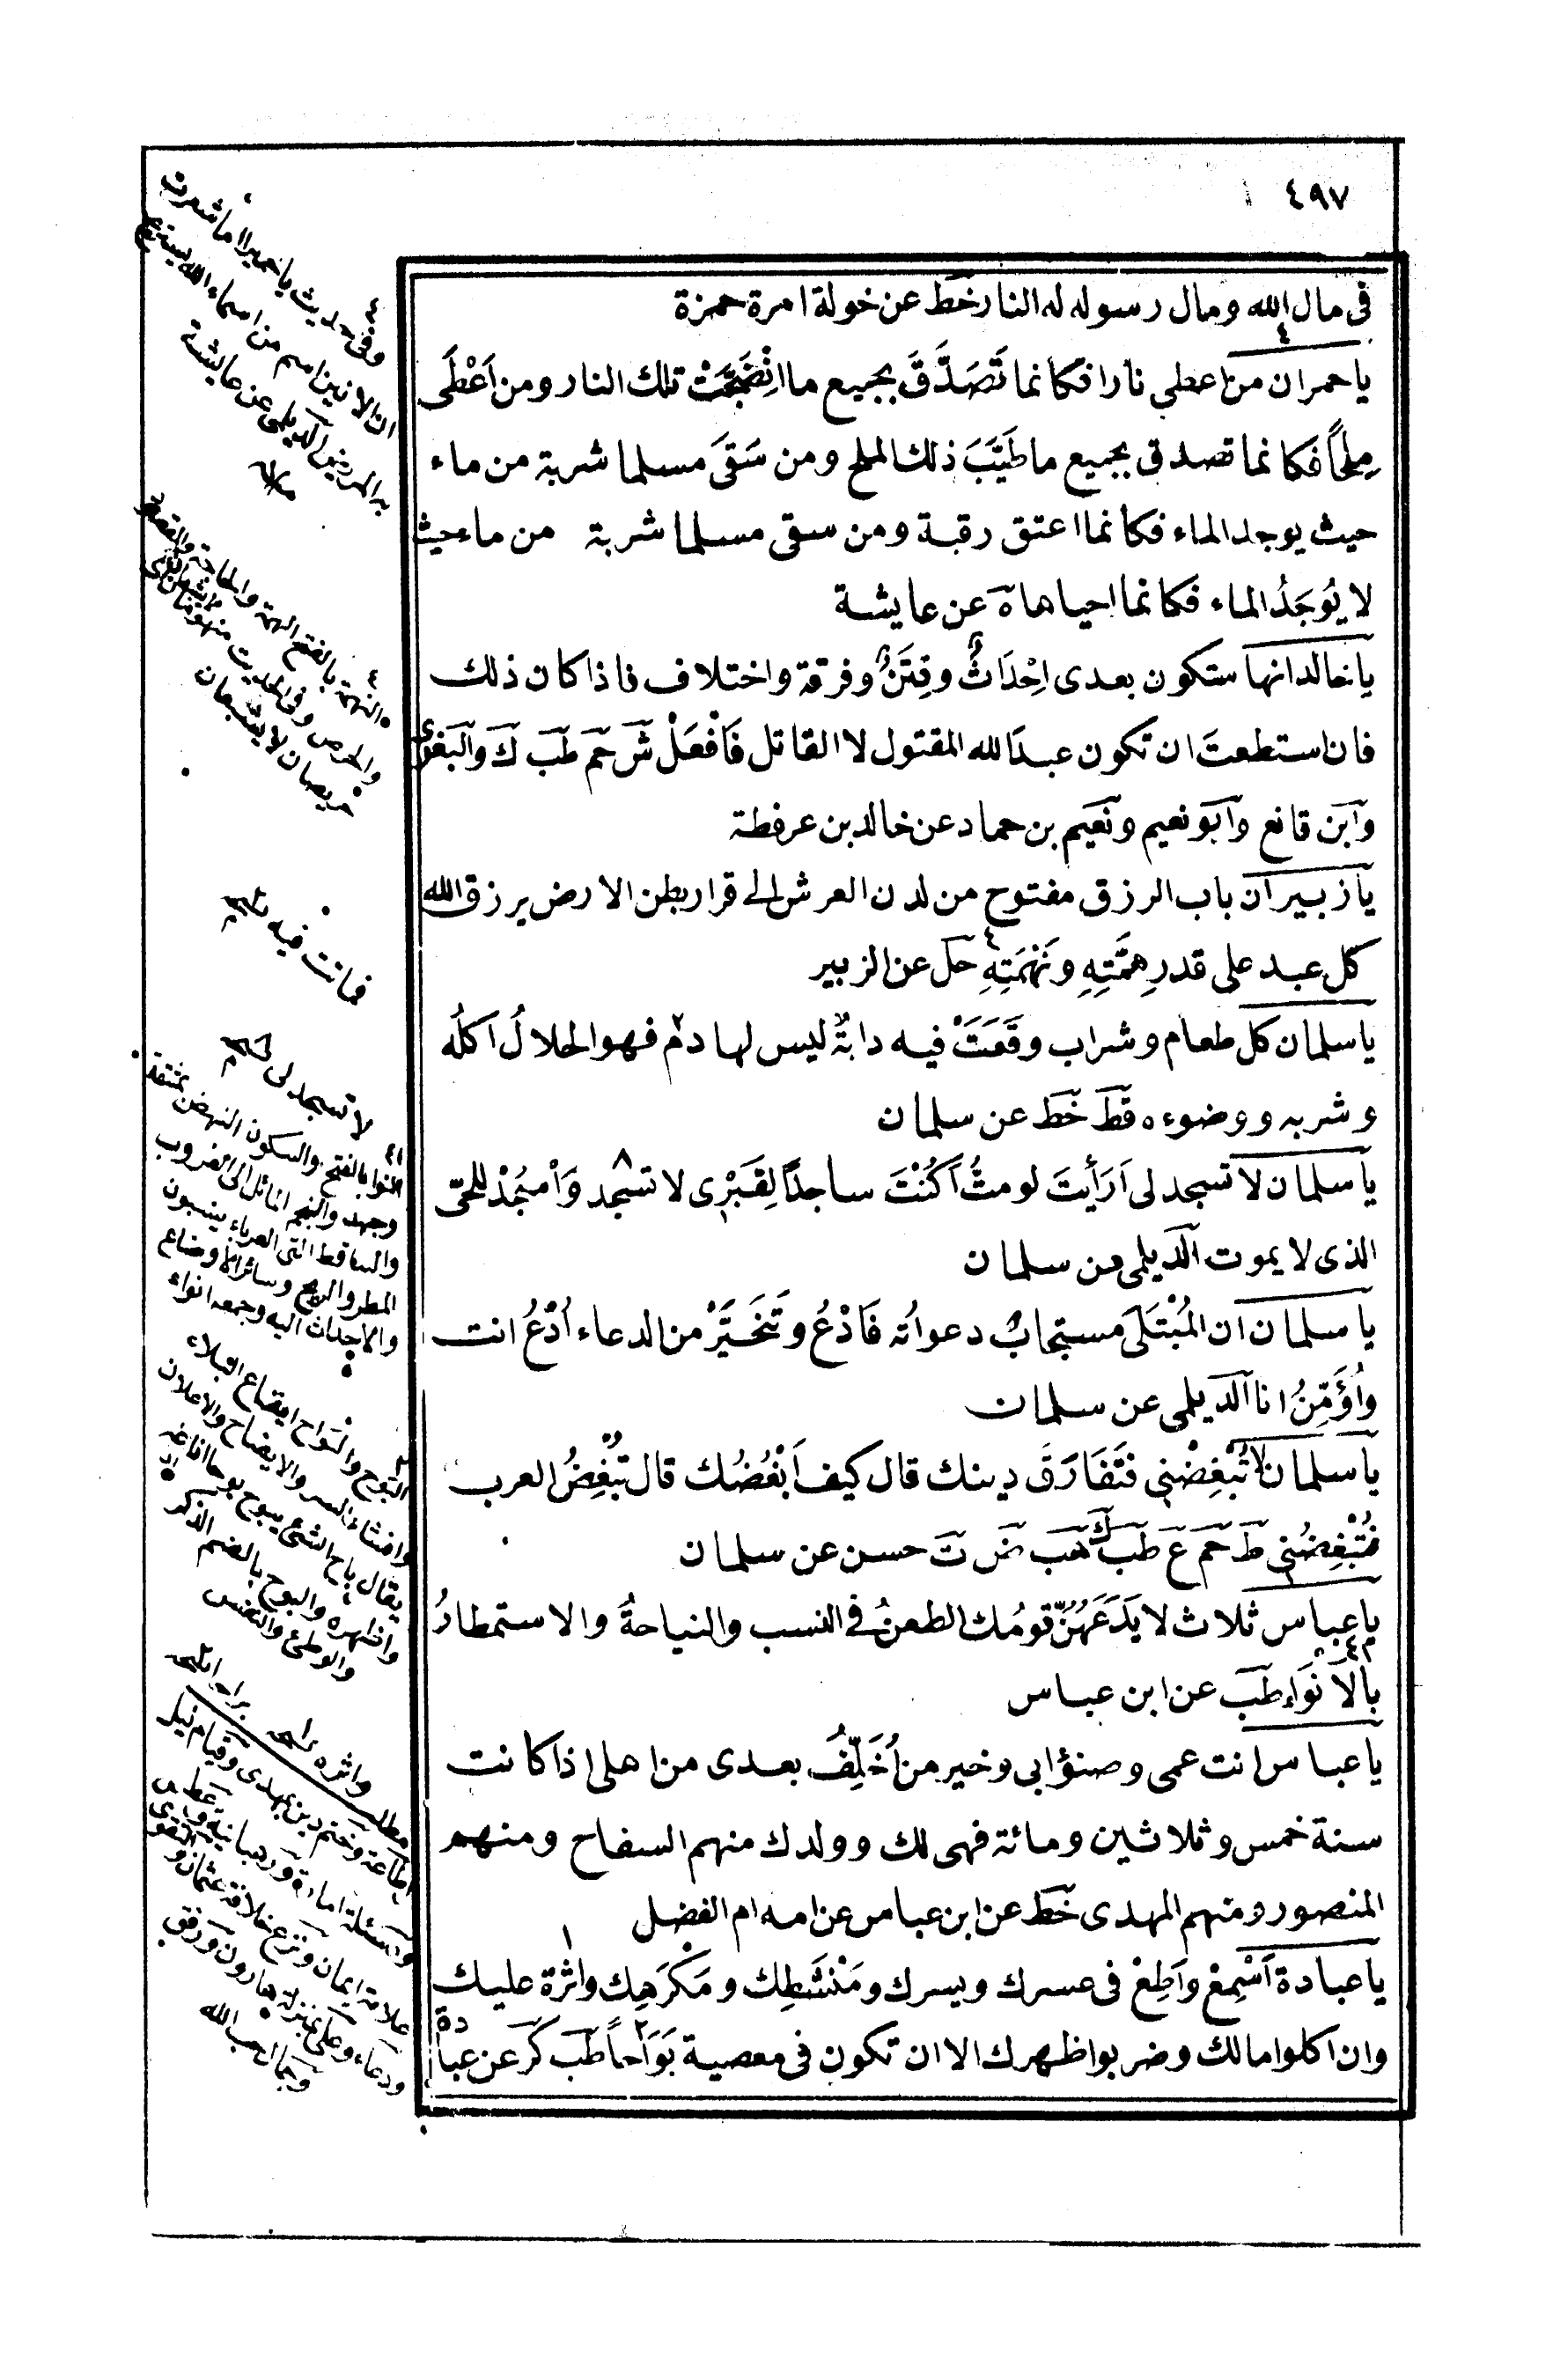 ٤٩٧
فى مال الله ومال رسوله له النار خط عن خولة امرة حمزة
ياحمران من اعطى نارا فكانما تَصَدَّقَ بجميع ما انْضَجَتْ تلك النار ومن اَعْطَى
مِلْحًا فكانما تصدق بجميع ما طَيَّبَ ذلك الملح ومن سَقَى مسلما شربة من ماء
حيث يوجد الماء فكانما اعتق رقبة ومن سقى مسلما شربة من ماء حيث
لا يُوجَدُ الماء فكانما احياها ه عن عايشة
ياخالد انها ستكون بعدى اِحْدَاثٌ وفِتَنٌ وفرقة واختلاف فاذا كان ذلك
فان استطعتَ ان تكون عبدَ الله المقتول لا القاتل فَافْعَلْ ش حم طب ك والبغوى
وابن قانع وابو نعيم ونعيم بن حماد عن خالد بن عرفطة
يازبير ان باب الرزق مفتوح من لدن العرش الى قرار بطن الارض يرزق الله
كل عبد على قدر هِمَّتِهِ ونَهْمَتِهِ حل عن الزبير
ياسلمان كل طعام وشراب وقَعَتْ فيه دابةٌ ليس لها دم فهو الحلال اَكلُه
وشربه ووضوءه قط خط عن سلمان
ياسلمان لا تسجد لى اَرَأيتَ لو متُّ اَكُنْتَ ساجدًا لِقَبْرِى لا تسْجد وَاسْجُدْ للحىّ
الذى لا يموت الديلمى من سلمان
ياسلمان ان المُبْتَلَى مستجابٌ دعواتُه فَادْعُ وتَخَيَّرْ من الدعاء اُدْعُ انت
واُؤَمِّنُ انا الديلمى عن سلمان
ياسلمان لا تُبْغِضْنى فتَفَارَقَ دينك قال كيف اَبْغُضُك قال تُبْغِضُ العرب
فتُبْغِضُنى ط حم ع طب ك هب ض ت حسن عن سلمان
ياعباس ثلاث لا يَدَعَهُنّ قومُك الطعنُ فى النسب والنياحةُ والاستمطارُ
بالاَنْوَاء طب عن ابن عباس
ياعباس انت عمى وصنؤ ابى وخير من اُخَلِّفُ بعدى من اهلى اذا كانت
سنة خمس وثلاثين ومائة فهى لك وولدك منهم السفاح ومنهم
المنصور ومنهم المهدى خط عن ابن عباس عن امه ام الفضل
ياعبادة اَسْمِعْ واَطِعْ فى عسرك ويسرك ومَنْشَطِك ومَكْرَهِك واثرة عليك
وان اكلوا مالك وضربوا ظهرك الا ان تكون فى معصية بَوَاحاً طب كر عن عبادة
٤ وفى حديث ياحميرا اما شعرت
ان الانين اسم من اسماء الله يستريح
به المريض الديلمى عن عايشة
٤ النهمة بالفتح الهمة والحاجة والقصد
والحرص وفى الحديث منهومان لا يشبعان اى
حريصان لا يشبعان
فماتت فيه نسخه
لا تسجد لى نسخه
النوا بالفتح والسكون النهض بمشقة
وجهد والنجم المائل الى الغروب
والساقط التى العرباء ينسبون
المطر والريح وسائر الاوضاع
والاحداث اليه وجمعه انواء
٢ البوح والبواح ايقاع البلاء
وافشاء السر والايضاح والاعلان
يقال باح الشئ يبوح بوحا اذا
واظهره والبوح بالضم الذكر
والوطئ والنفس
مطلب
اطاعة وختم دين بمهدى وقيام نيل
ومسئلة امارة ورهبانية
علامة ايمان ونزع خلافة عثمان
ودعاء وعلى بمنزلة هارون ورفق
وجمال حب الله